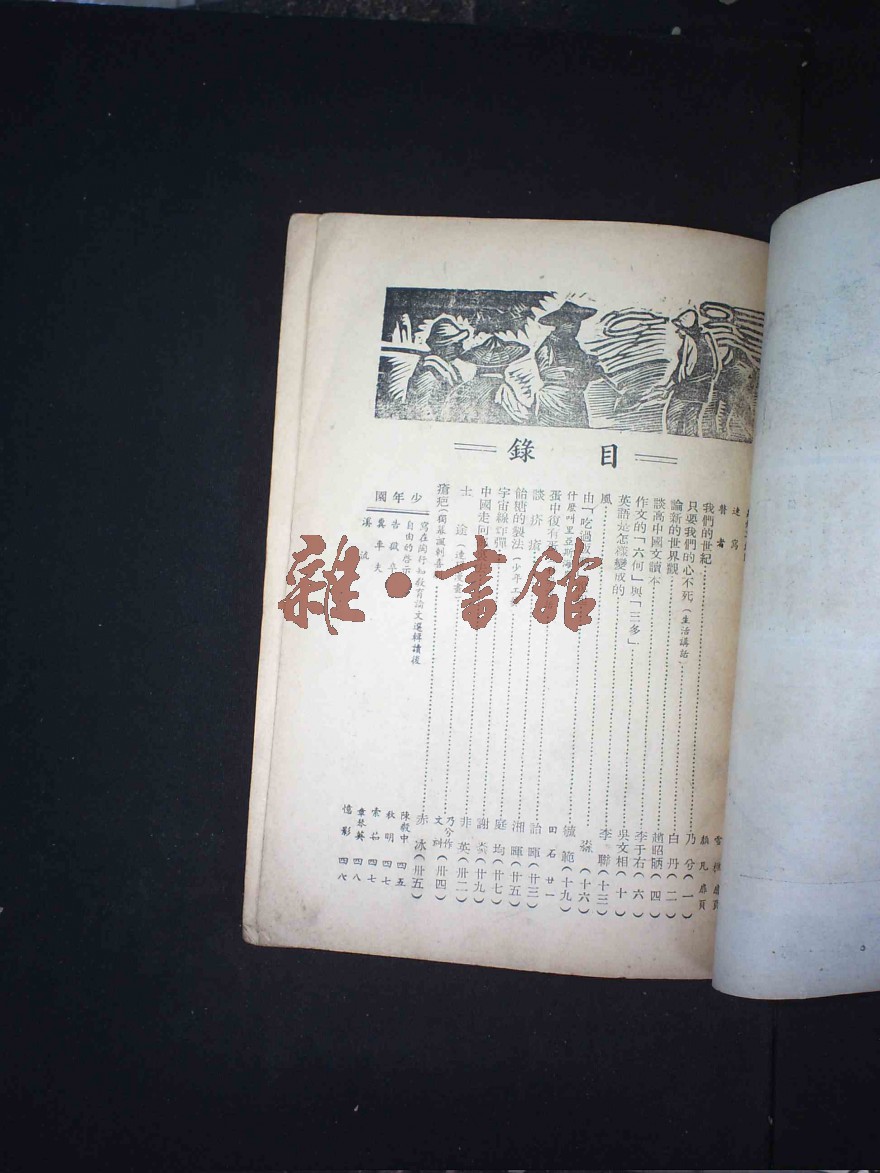 目錄
速寫
我們的世紀
只要我們的心不死(生活講話)……乃兮(一)
論新的世界觀……白丹(二)
談高中國文讀本……趙昭昞(四)
作文的「六何」與「三多」……李于右(六)
英語是怎樣變成的……吳文相(十)
風……李聯(十三)
由「吃過……(十六)
什麼叫里亞斯……範(十九)
蛋中復有……田石 廿一
談疥瘡……詒暉(卅三)
飴糖的製法(少年工……湘暉(廿五)
宇宙線炸彈……庭均(廿七)
中國走向……謝森(廿九)
士途……非英(卅二)
瘡疤(獨幕諷刺喜……乃兮作 文糾(卅四)
……赤冰(卅五)
少年園
寫在陶行知教育論文選輯讀後 陳毅中 四五
自由的啓示 秋明 四七
告獄卒 素茹 四七
冀車夫 章琴英 四八
溪流 憶影 四八
雜·書館